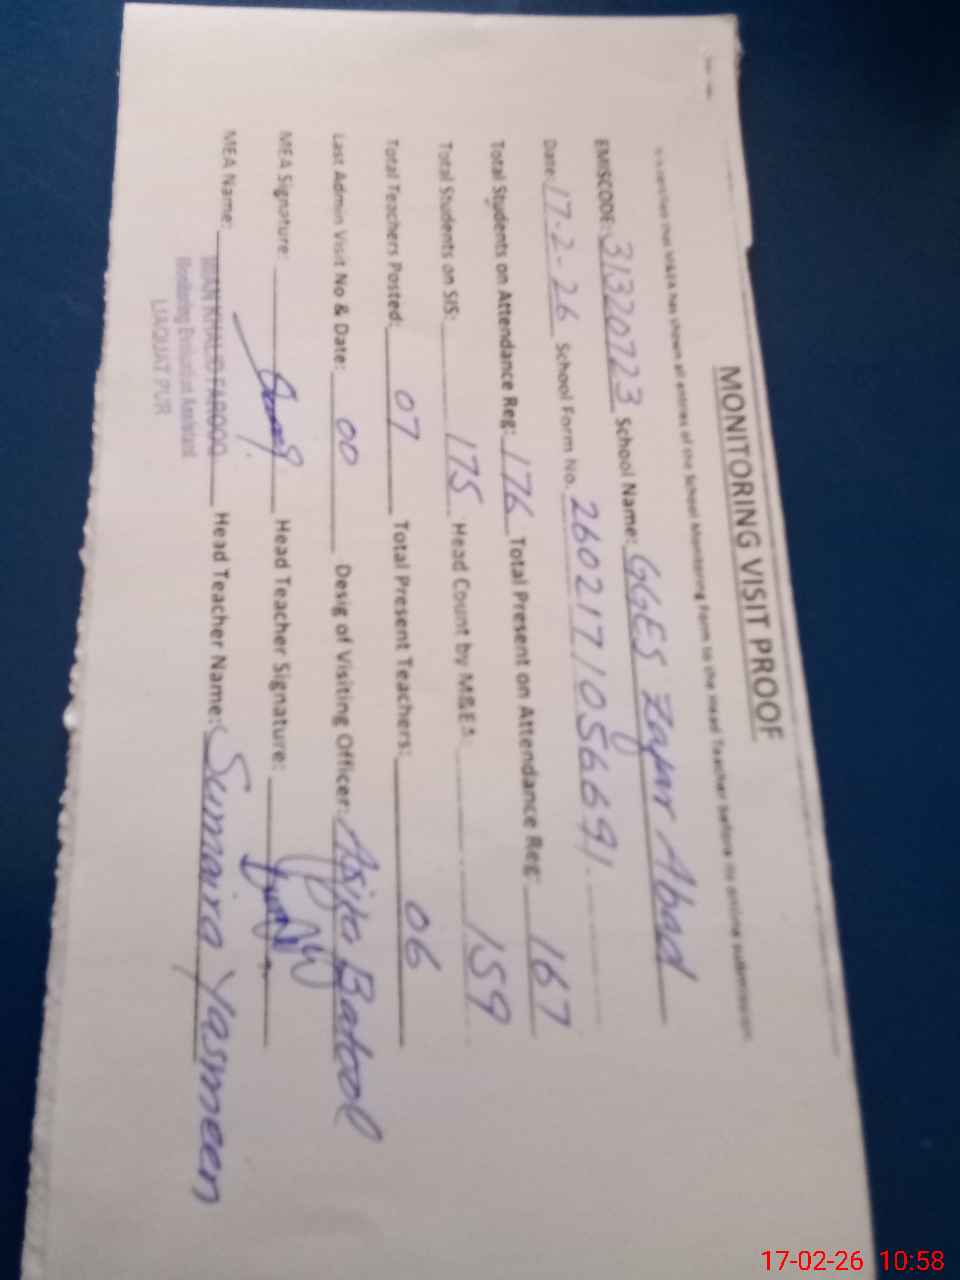 MONITORING VISIT PROOF
that M&EA has shown all entries of the School Monitoring Form to the Head Teacher before its online submission
EMISCODE: 31320723 School Name: GGES Zafar Abad
Date: 17-2-26 School Form No. 260217105669 1
Total Students on Attendance Reg: 176 Total Present on Attendance Reg: 167
Total Students on SIS: 175 Head Count by M&EA 159
Total Teachers Posted: 07 Total Present Teachers: 06
Last Admin Visit No & Date: 00 Desig of Visiting Officer: Batool
MEA Signature: Head Teacher Signature:
MEA Name: MIAN KHALID FAROOQ Head Teacher Name: Sumaira Yasmeen
Monitoring Evaluation Assistant
LIAQUAT PUR
17-02-26 10:58